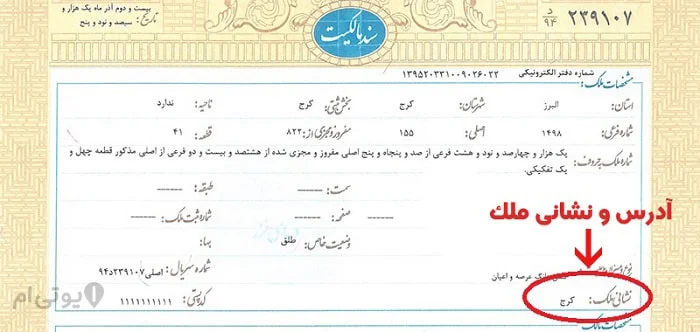 ۲۳۹۱۰۷ د ۹۴
سند مالکیت
تاریخ: بیست و دوم آذر ماه یک هزار و
سیصد و نود و پنج
شماره دفتر الکترونیکی: ۱۳۹۵۲۰۳۳۱۰۰۹۰۲۶۰۲۲
مشخصات ملک:
استان: البرز شهرستان: کرج بخش ثبتی: کرج ناحیه: ندارد
شماره فرعی: ۱۴۹۸ اصلی: ۱۵۵ مفروز و مجزی از: ۸۲۲ قطعه: ۴۱
شماره ملک به حروف: یک هزار و چهارصد و نود و هشت فرعی از صد و پنجاه و پنج اصلی مفروز و مجزی شده از هشتصد و بیست و دو فرعی از اصلی مذکور قطعه چهل و
یک تفکیکی.
سمت: ------ طبقه: ------
------ صفحه: ------ شماره ثبت ملک: ------
وضعیت خاص: طلق بها:
آدرس و نشانی ملک
عرصه و اعیان شماره سریال: اصلی۲۳۹۱۰۷د۹۴
نشانی ملک: کرج کد پستی: ۱۱۱۱۱۱۱۱۱۱
یوتی‌ام
مشخصات مالک